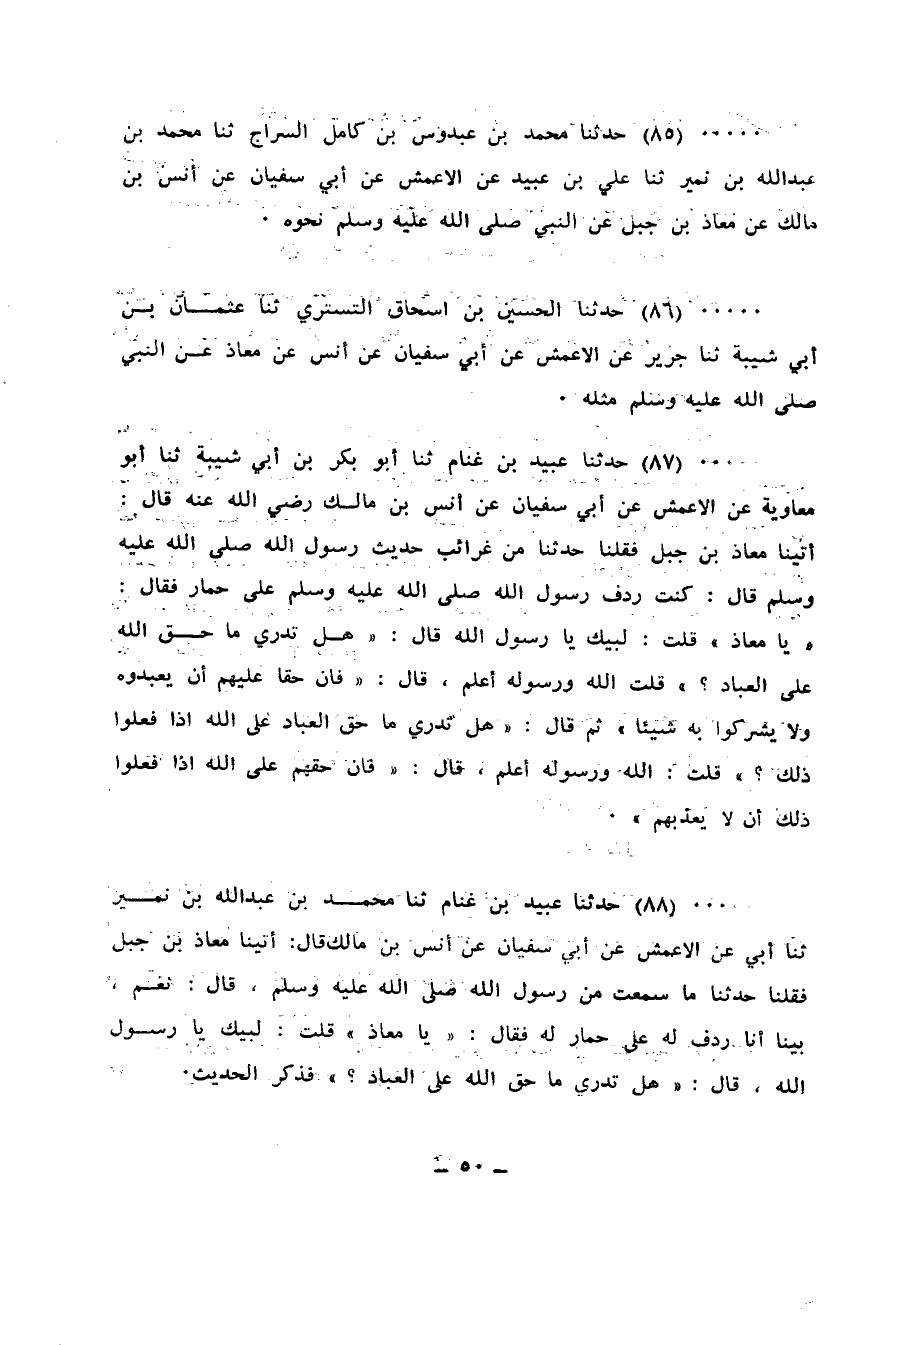 ..... (٨٥) حدثنا محمد بن عبدوس بن كامل السراج ثنا محمد بن
عبدالله بن نمير ثنا علي بن عبيد عن الاعمش عن أبي سفيان عن أنس بن
مالك عن معاذ بن جبل عن النبي صلى الله عليه وسلم نحوه .
..... (٨٦) حدثنا الحسين بن اسحاق التستري ثنا عثمــان بــن
أبي شيبة ثنا جرير عن الاعمش عن أبي سفيان عن أنس عن معاذ عــن النبي
صلى الله عليه وسلم مثله .
.... (٨٧) حدثنا عبيد بن غنام ثنا أبو بكر بن أبي شيبة ثنا أبو
معاوية عن الاعمش عن أبي سفيان عن أنس بن مالــك رضي الله عنه قال :
أتينا معاذ بن جبل فقلنا حدثنا من غرائب حديث رسول الله صلى الله عليه
وسلم قال : كنت ردف رسول الله صلى الله عليه وسلم على حمار فقال :
« يا معاذ » قلت : لبيك يا رسول الله قال : « هــل تدري ما حــق الله
على العباد ؟ » قلت الله ورسوله أعلم ، قال : « فان حقا عليهم أن يعبدوه
ولا يشركوا به شيئا » ثم قال : « هل تدري ما حق العباد على الله اذا فعلوا
ذلك ؟ » قلت : الله ورسوله أعلم ، قال : « فان حقهم على الله اذا فعلوا
ذلك أن لا يعذبهم » .
.... (٨٨) حدثنا عبيد بن غنام ثنا محمــد بن عبدالله بن نمــير
ثنا أبي عن الاعمش عن أبي سفيان عن أنس بن مالك قال: أتينا معاذ بن جبل
فقلنا حدثنا ما سمعت من رسول الله صلى الله عليه وسلم ، قال : نعــم ،
بينا أنا ردف له على حمار له فقال : « يا معاذ » قلت : لبيك يا رســول
الله ، قال : « هل تدري ما حق الله على العباد ؟ » فذكر الحديث.
ــ ٥٠ ــ